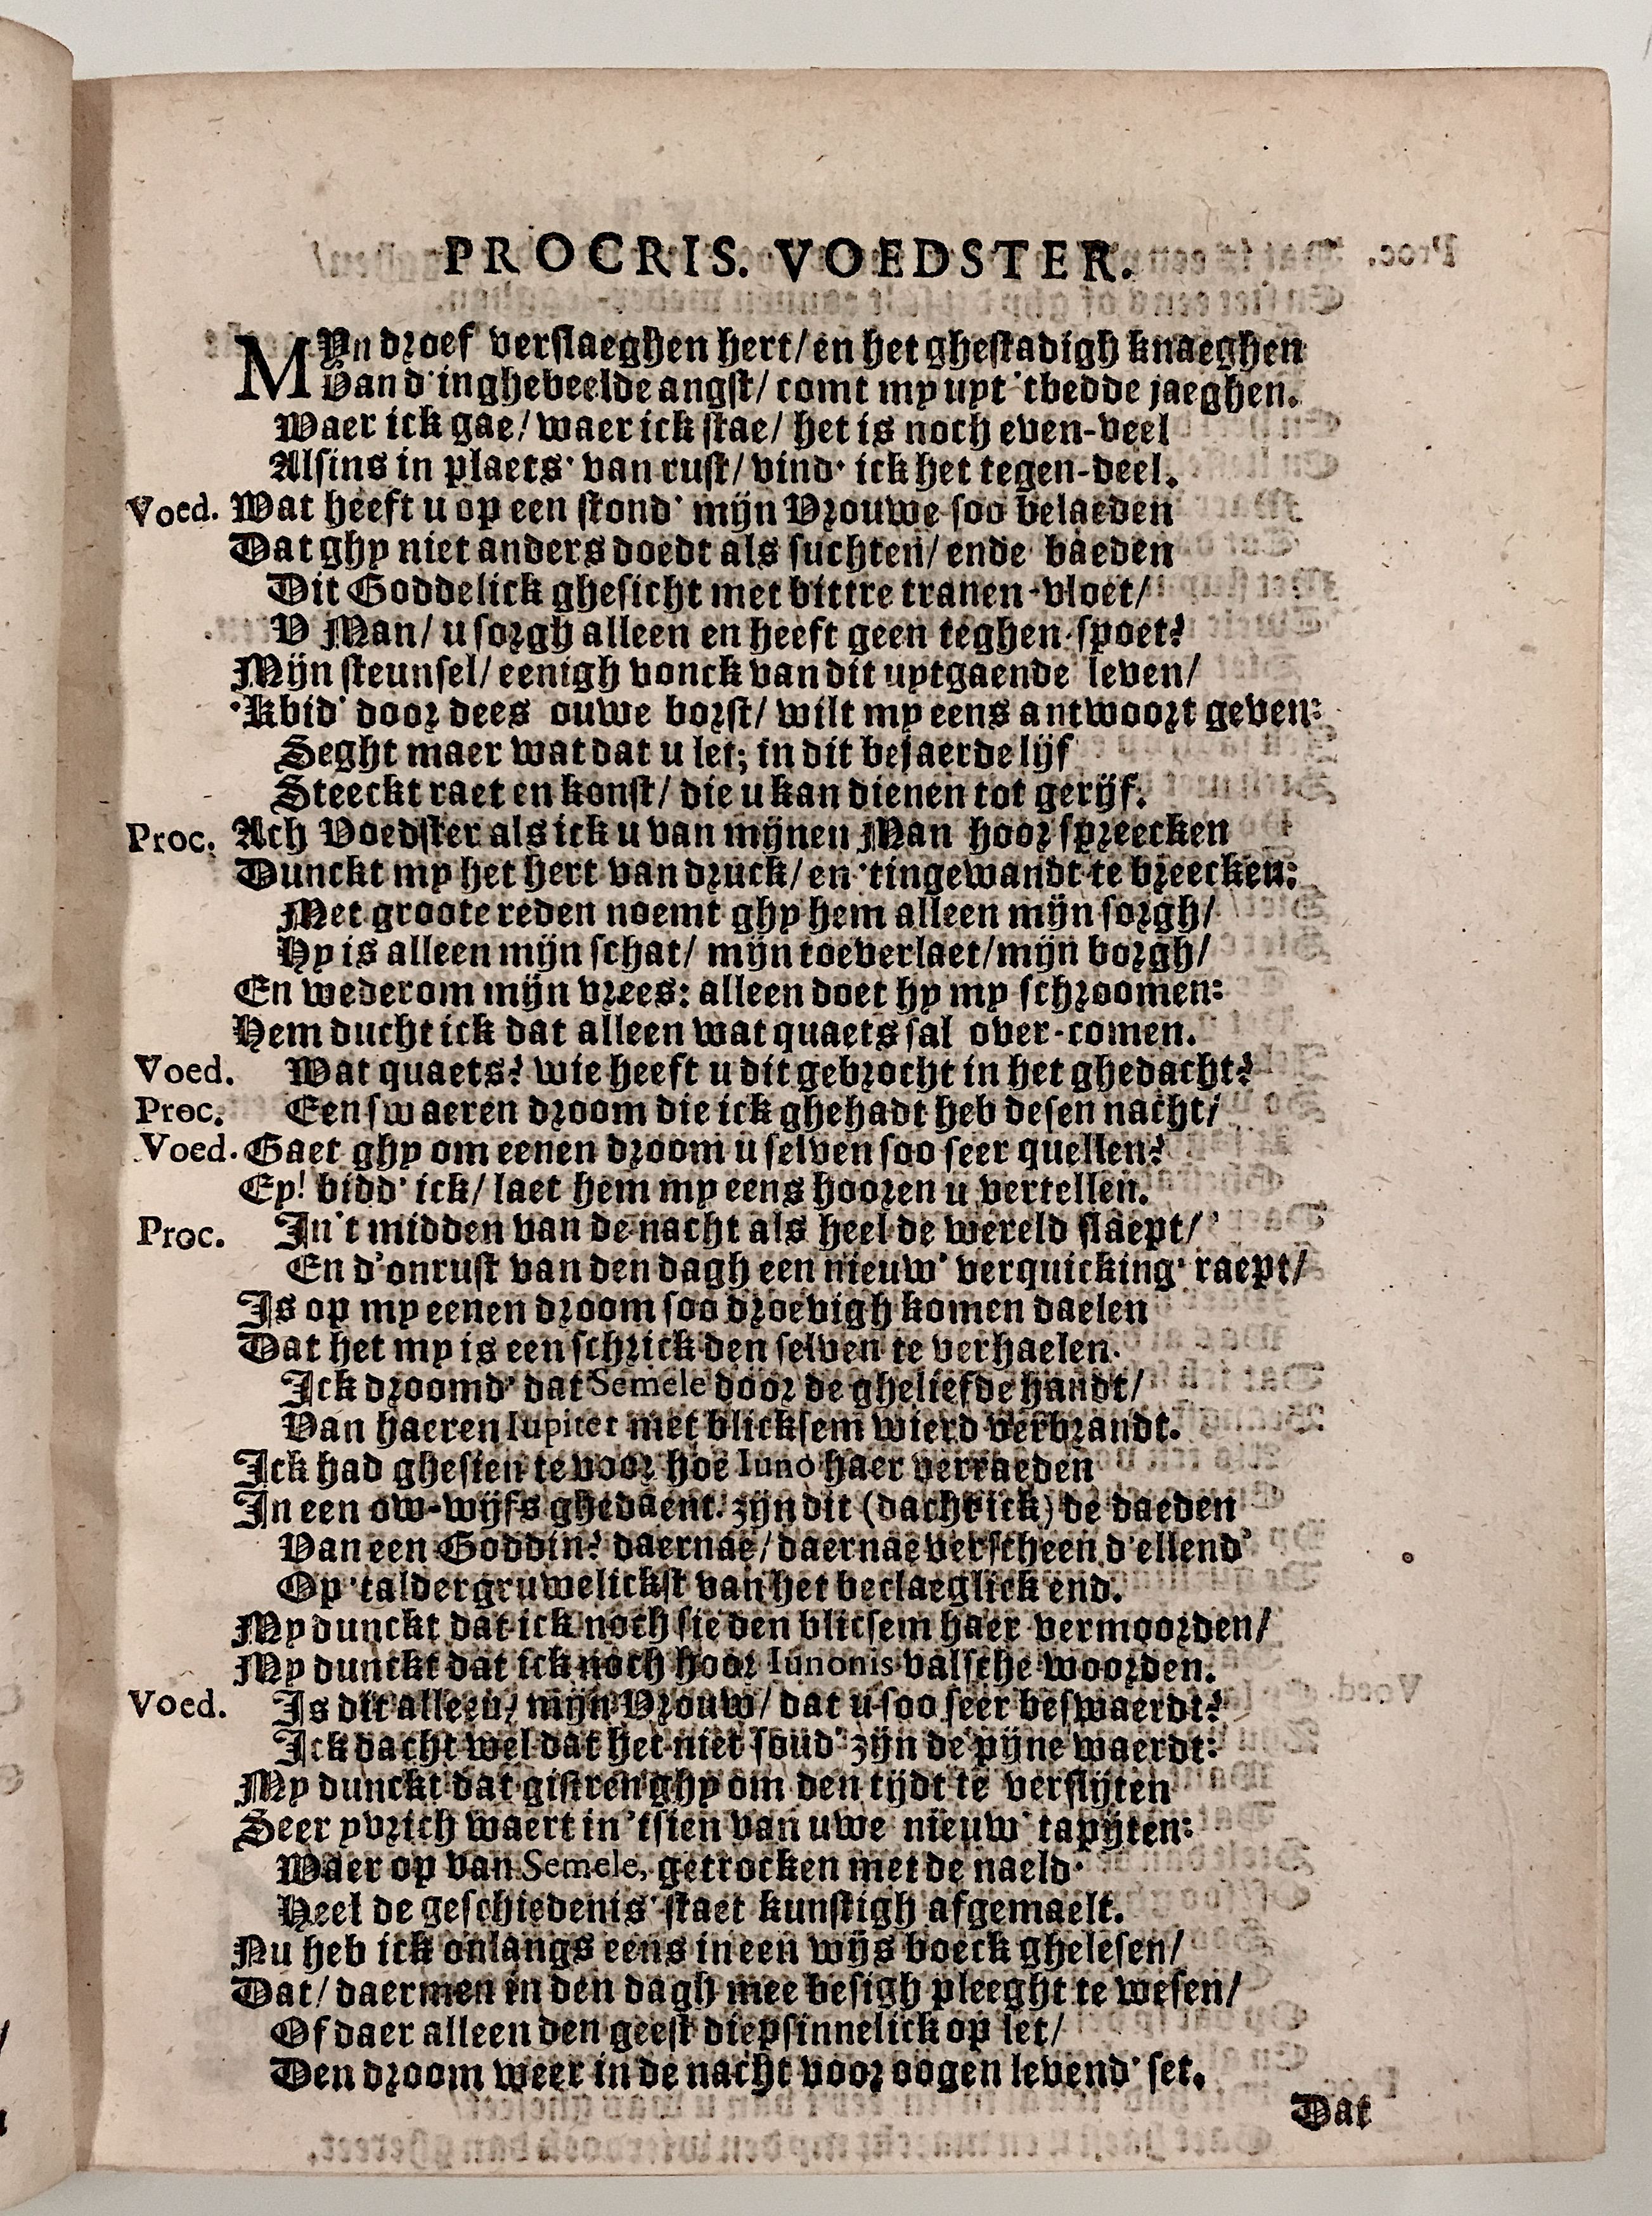 PROCRIS. VOEDSTER.
MYn droef verslaeghen hert/ en het ghestadigh knaeghen
Van d'inghebeelde angst/ comt my uyt 'tbedde jaeghen.
Waer ick gae/ waer ick stae/ het is noch even-veel
Alsins in plaets' van rust/ vind' ick het tegen-deel.
Voed. Wat heeft u op een stond' mijn Vrouwe soo belaeden
Dat ghy niet anders doedt als suchten/ ende baeden
Dit Goddelick ghesicht met bittre tranen-vloet/
V Man/ u sorgh alleen en heeft geen teghen-spoet?
Mijn steunsel/ eenigh vonck van dit uytgaende leven/
'Kbid' door dees ouwe borst/ wilt my eens antwoort geven:
Seght maer wat dat u let; in dit bejaerde lijf
Steeckt raet en konst/ die u kan dienen tot gerijf.
Proc. Ach Voedster als ick u van mijnen Man hoor spreecken
Dunckt my het hert van druck/ en 'tingewandt te breecken:
Met groote reden noemt ghy hem alleen mijn sorgh/
Hy is alleen mijn schat/ mijn toeverlaet/ mijn borgh/
En wederom mijn vrees: alleen doet hy my schroomen:
Hem ducht ick dat alleen wat quaets sal over-comen.
Voed. Wat quaets? wie heeft u dit gebrocht in het ghedacht?
Proc. Een swaeren droom die ick ghehadt heb desen nacht/
Voed. Gaet ghy om eenen droom u selven soo seer quellen?
Ey! bidd' ick/ laet hem my eens hooren u vertellen.
Proc. In't midden van de nacht als heel de wereld slaept/
En d'onrust van den dagh een nieuw' verquicking' raept/
Is op my eenen droom soo droevigh komen daelen
Dat het my is een schrick den selven te verhaelen.
Ick droomd' dat Semele door de gheliefde handt/
Van haeren Iupiter met blicksem wierd verbrandt.
Ick had ghesien te voor hoe Iuno haer verraeden
In een ow-wijfs ghedaent. zijn dit (dacht ick) de daeden
Van een Goddin? daernae/ daernae verscheen d'ellend'
Op 'taldergruwelickst van het beclaeglick end.
My dunckt dat ick noch sie den blicsem haer vermoorden/
My dunckt dat ick noch hoor Iunonis valsche woorden.
Voed. Is dit alleen/ mijn Vrouw/ dat u soo seer beswaerdt?
Ick dacht wel dat het niet soud' zijn de pijne waerdt:
My dunckt dat gistren ghy om den tijdt te verslijten
Seer yvrich waert in 'tsien van uwe nieuw' tapijten:
Waer op van Semele, getrocken met de naeld'
Heel de geschiedenis' staet kunstigh afgemaelt.
Nu heb ick onlangs eens in een wijs boeck ghelesen/
Dat/ daermen in den dagh mee besigh pleeght te wesen/
Of daer alleen den geest diepsinnelick op let/
Den droom weer in de nacht voor oogen levend' set.
Dat